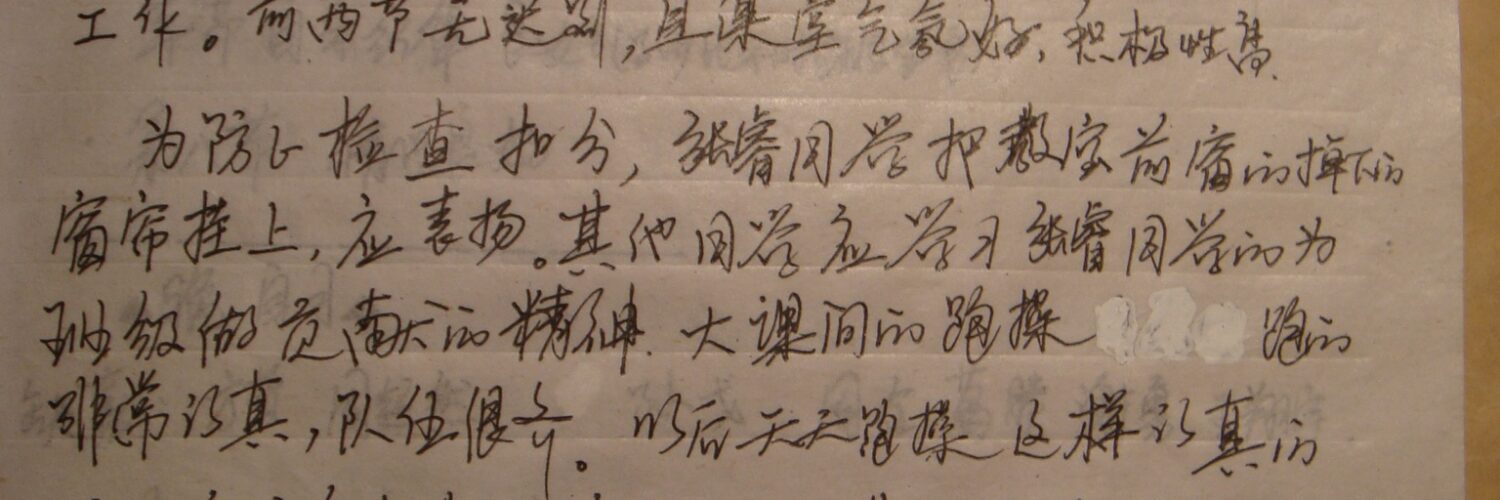 工作。前两节无迟到,且课堂气氛好,积极性高.
为防止检查扣分,张睿同学把教室前窗的掉下的
窗帘挂上,应表扬。其他同学应学习张睿同学的为
班级做贡献的精神. 大课间的跑操 跑的
非常认真,队伍很齐。以后天天跑操这样认真的